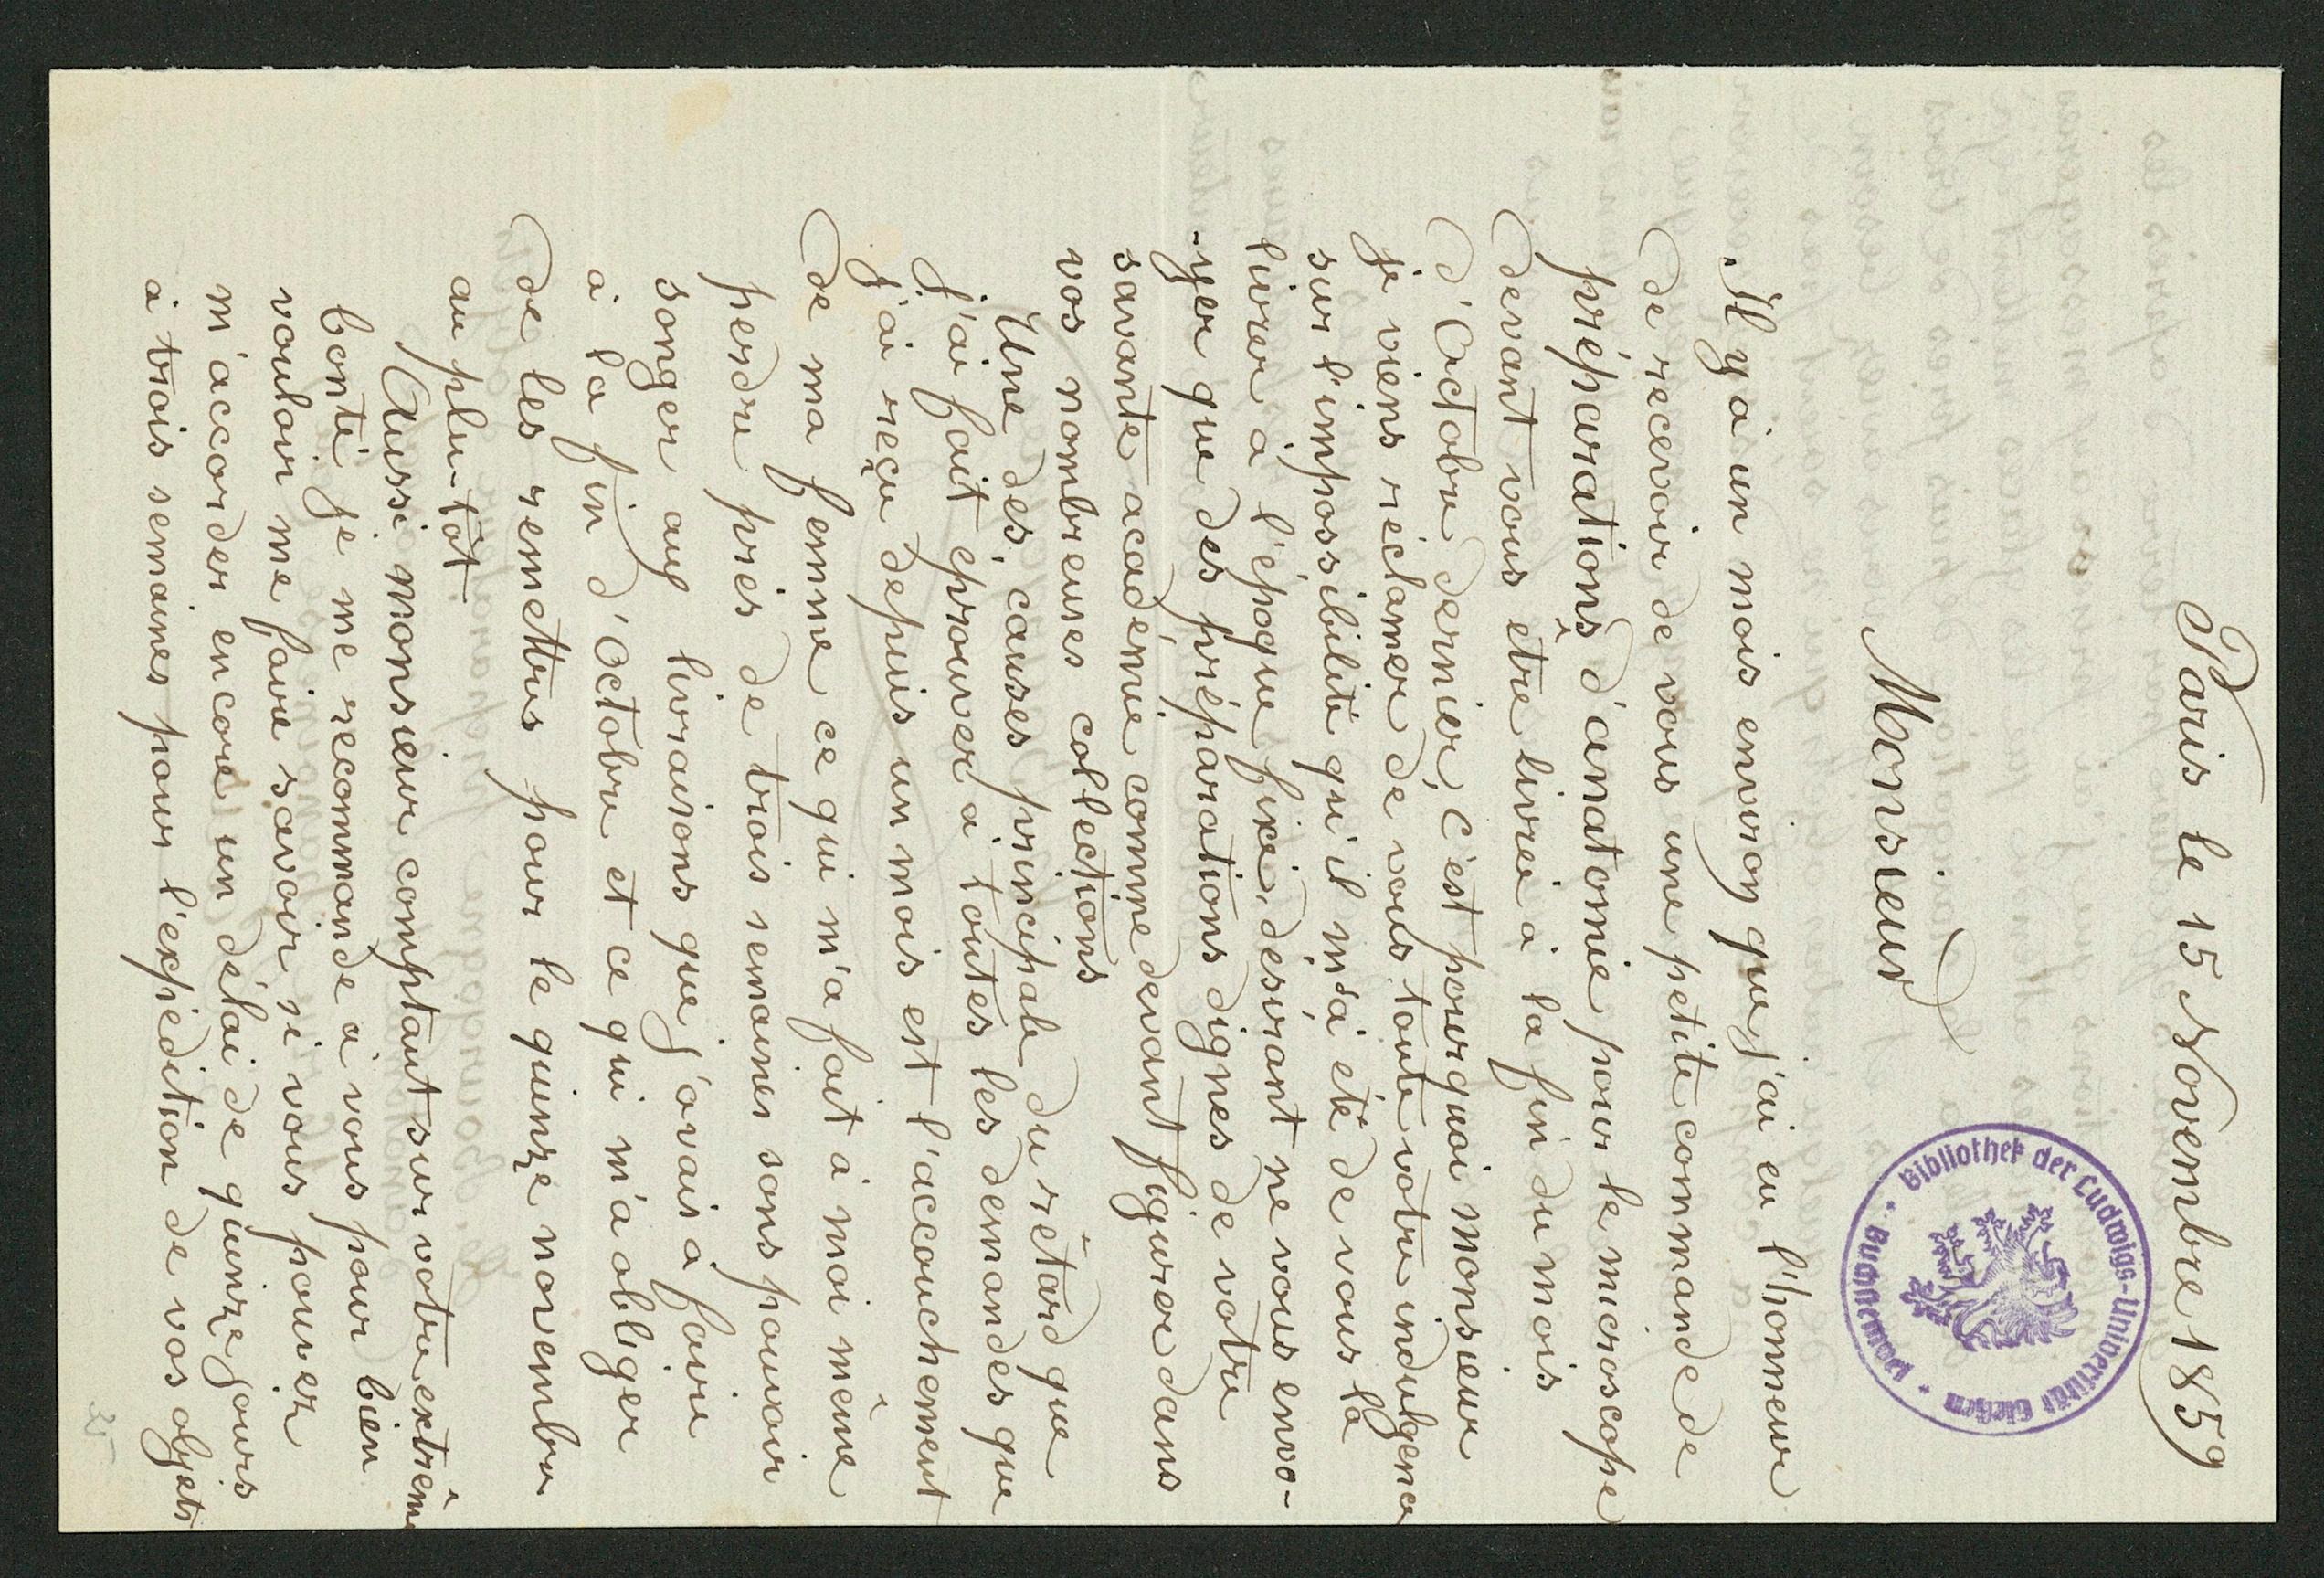 Paris le 15 Novembre 1859
Monsieur
Bibliothek der Ludwigs-Universität Gießen
Il y a un mois environ que j'ai eu l'honneur
de recevoir de vous une petite commande de
préparations d'anatomie pour le microscope
devant vous être livrée à la fin du mois
d'Octobre dernier, c'est pourquoi monsieur
je viens réclamer de vous toute votre indulgence
sur l'impossibilité qu'il m'a été de vous la
livrer à l'époque fixée, désirant ne vous envo-
-yer que des préparations dignes de votre
savante académie comme devant figurer dans
vos nombreuses collections
Une des causes principale du rétard que
j'ai fait éprouver à toutes les demandes que
j'ai reçu depuis un mois est l'accouchement
de ma femme ce qui m'a fait à moi même
perdre près de trois semaines sans pouvoir
songer aux livraisons que j'avais à faire
à la fin d'Octobre et ce qui m'a obliger
de les remettres pour le quinze novembre
au plu-tôt
Aussi monsieur comptant sur votre extrême
bonté je me recommande à vous pour bien
vouloir me faire savoir si vous pouvez
m'accorder encore un délai de quinze jours
à trois semaines pour l'expédition de vos objets